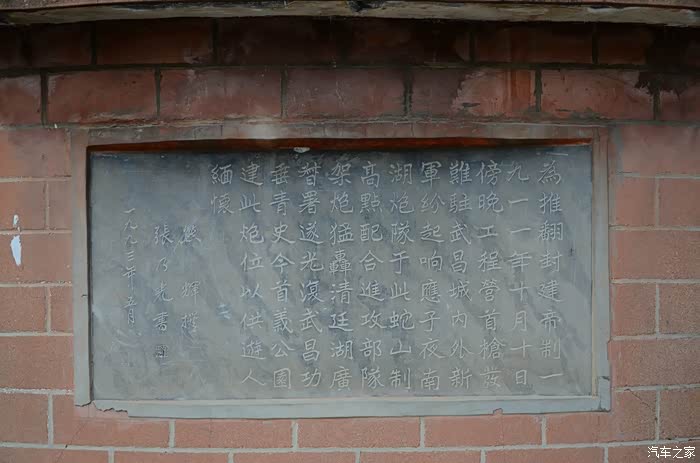 為推翻封建帝制一
九一一年十月十日
傍晚工程營首槍發
難駐武昌城內外新
軍紛起响應子夜南
湖炮隊于此蛇山制
高點配合進攻部隊
架炮猛轟清廷湖廣
督署遂光復武昌功
垂青史今首義公園
建此炮位以供遊人
緬懷
輝撰
張乃光書
一九九三年五月
汽车之家